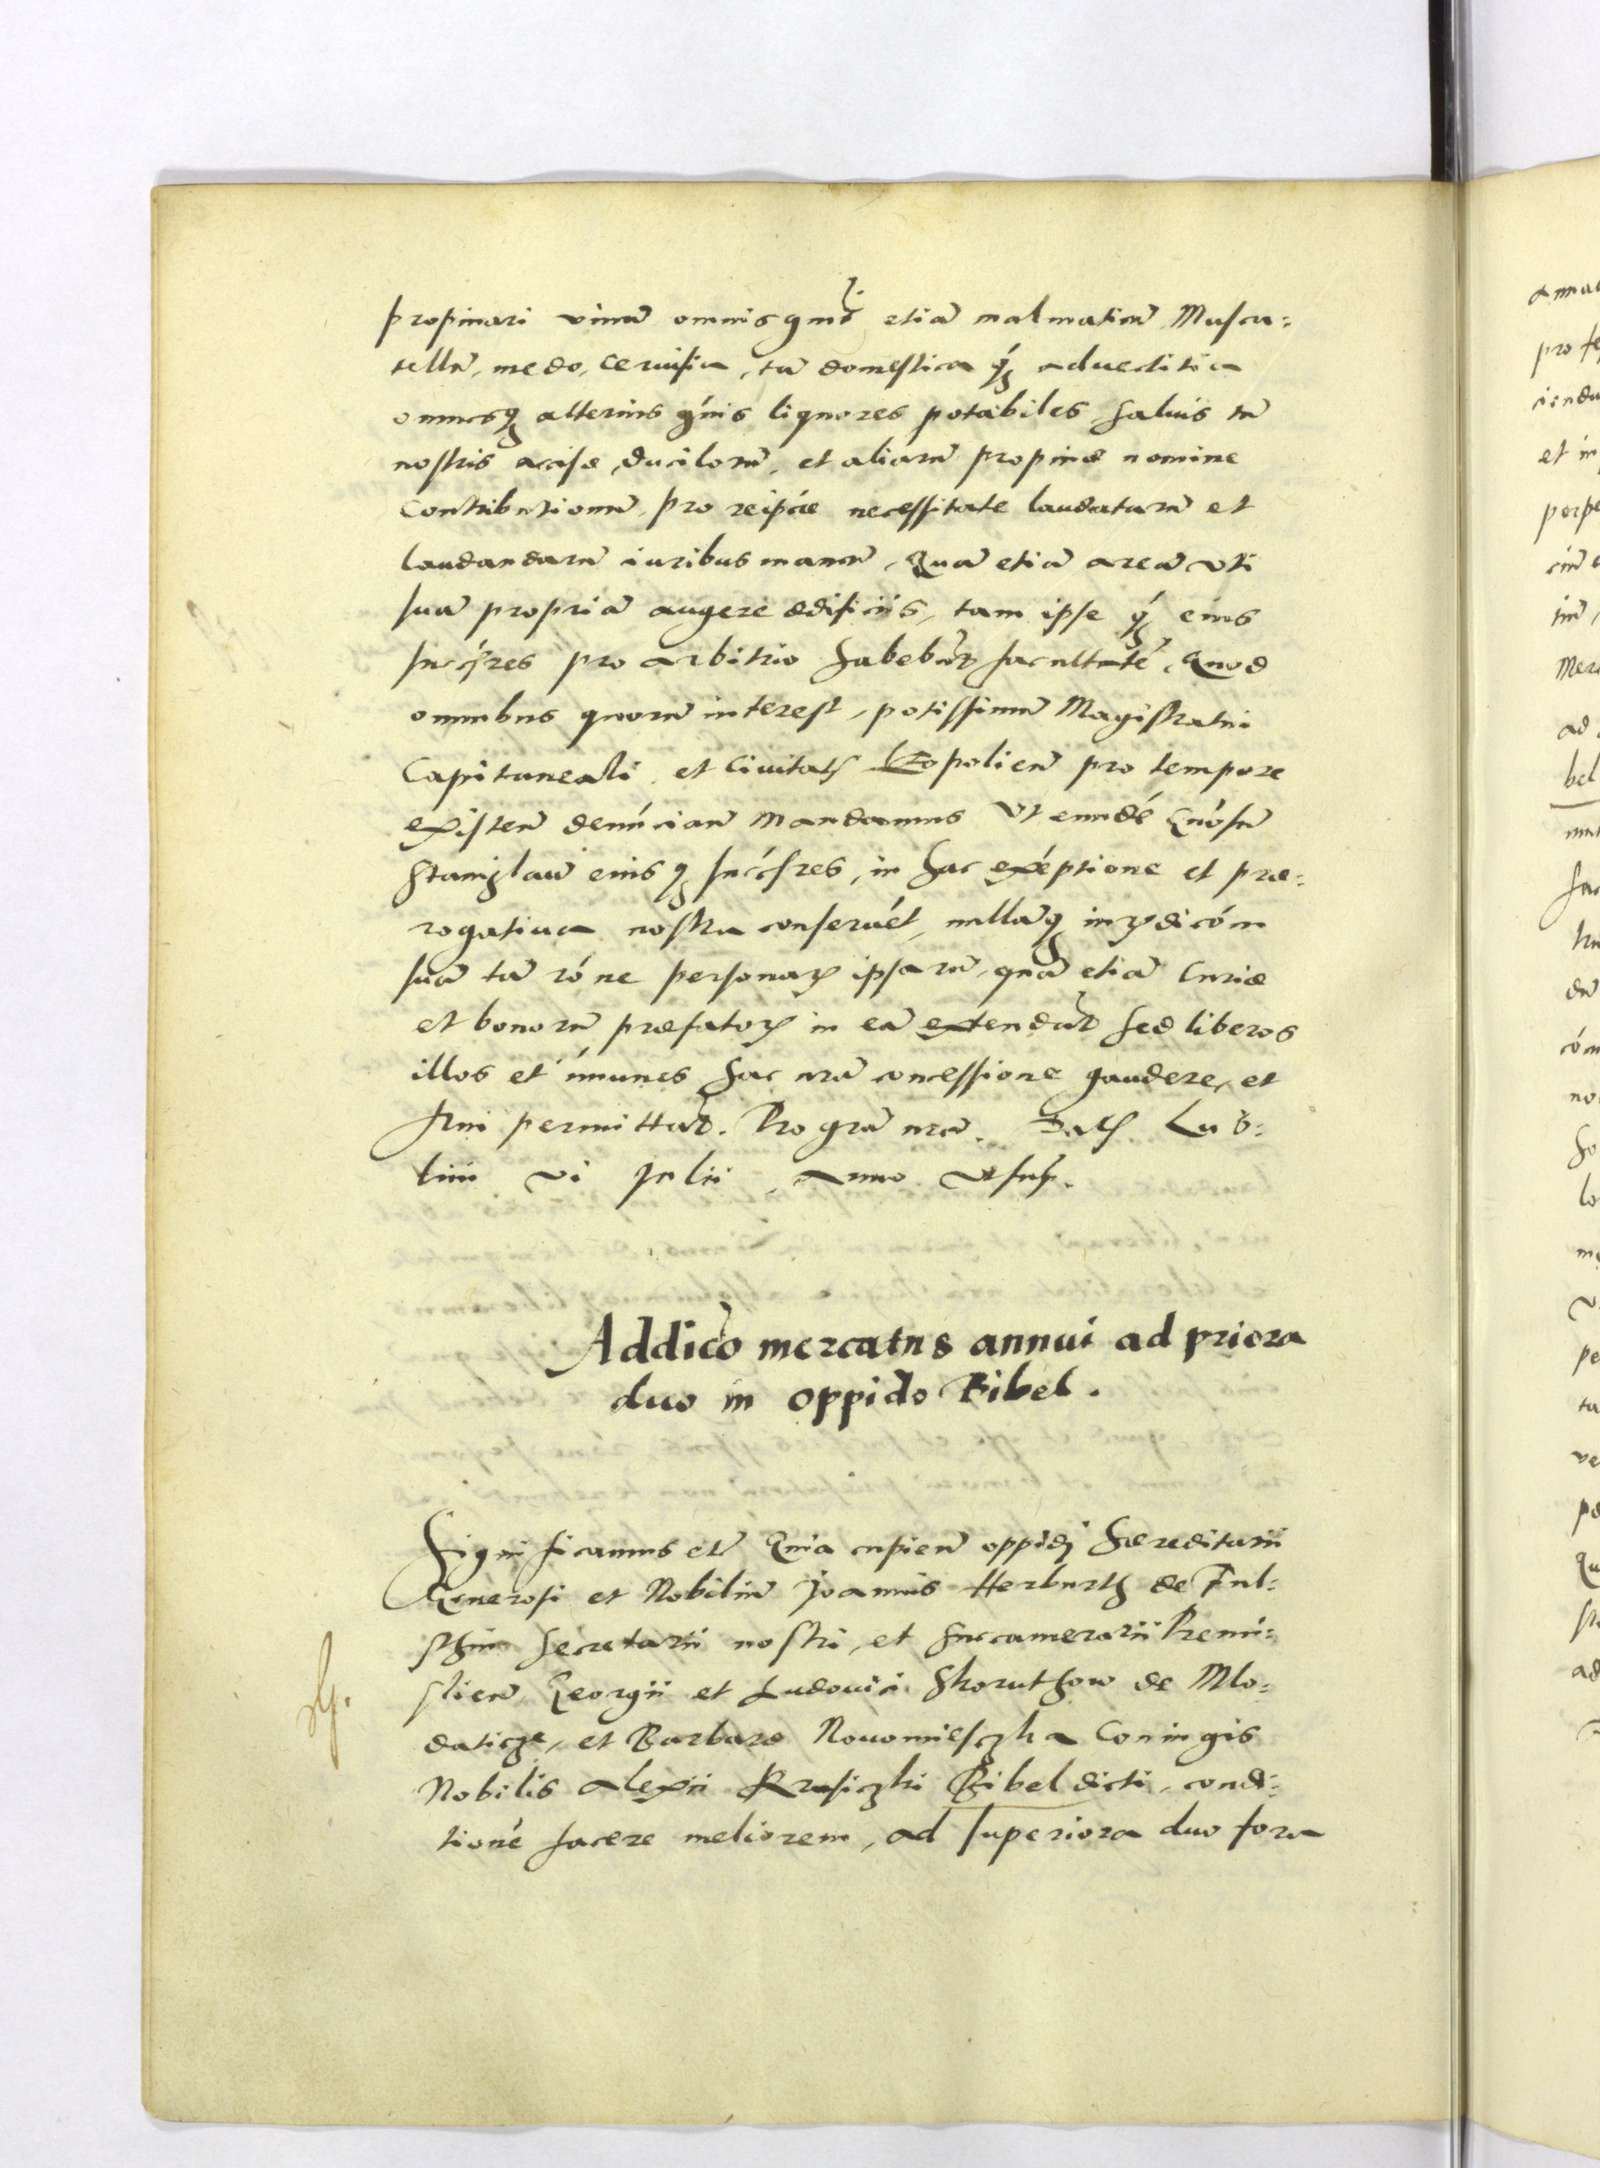 propinari vinu̅ omnis gn̅is etia̅ malmaticu̅ Musca:
tellu̅, medo, ceruisia, ta̅ domestica q̃ aduectitia
omnesq̃ alterius g̅nis liquores potabiles saluis tn̅
nostris acisæ, ducilorum̅, et aliarum̅ propinæ nomine
Contributionum̅ pro reip̅cæ necessitate laudatarum̅ et
laudandarum̅ iuribus manen̅, Qua̅ etia̅ area̅ vti
sua̅ propria̅ augere ædificiis, tam ipse q̃ eius
succ̅res pro arbitrio habebu̅t facultate̅, Quod
omnibus quoru̅ interest, potissimu̅ Magistratui
Capitaneali, et Ciuitatis Leopolien̅ pro tempore
existen̅ denu̅cian̅ Mandamus Vt eunde̅ G̅nosu̅
Stanislau̅ eiusq̃ succ̅sres, in hac exe̅ptione et præ:
rogatiua nostra conseruet, nullaq̃ iurisdico̅m
sua̅ ta̅ ro̅ne personarum ipsaru̅, qua̅ etia̅ Curiæ
et bonoru̅ præfatorum in ea̅ extendat sed liberos
illos et i̅munes hac nr̅a concessione gaudere, et
frui permittat. Pro gra̅ nr̅a. Datum Lub:
lini vi Julii, Anno Vt sup.
Addico̅ mercatus annui ad priora
duo in oppido Bibel.
Significamus etc̅ Quia cupien̅ oppidi hæreditarii
Generosi et Nobiliu̅ Joannis Herburth de Ful:
sthin Secretarii nostri, et succamerarii Premi:
slien̅, Georgii et Ludouici Skoruthow de Mlo:
daticze, et Barbaræ Nouomiesczka Coniugis
Nobilis Alexii Krusiczki Bibel dicti, condi:
tione̅ facere meliorem, ad superiora duo fora